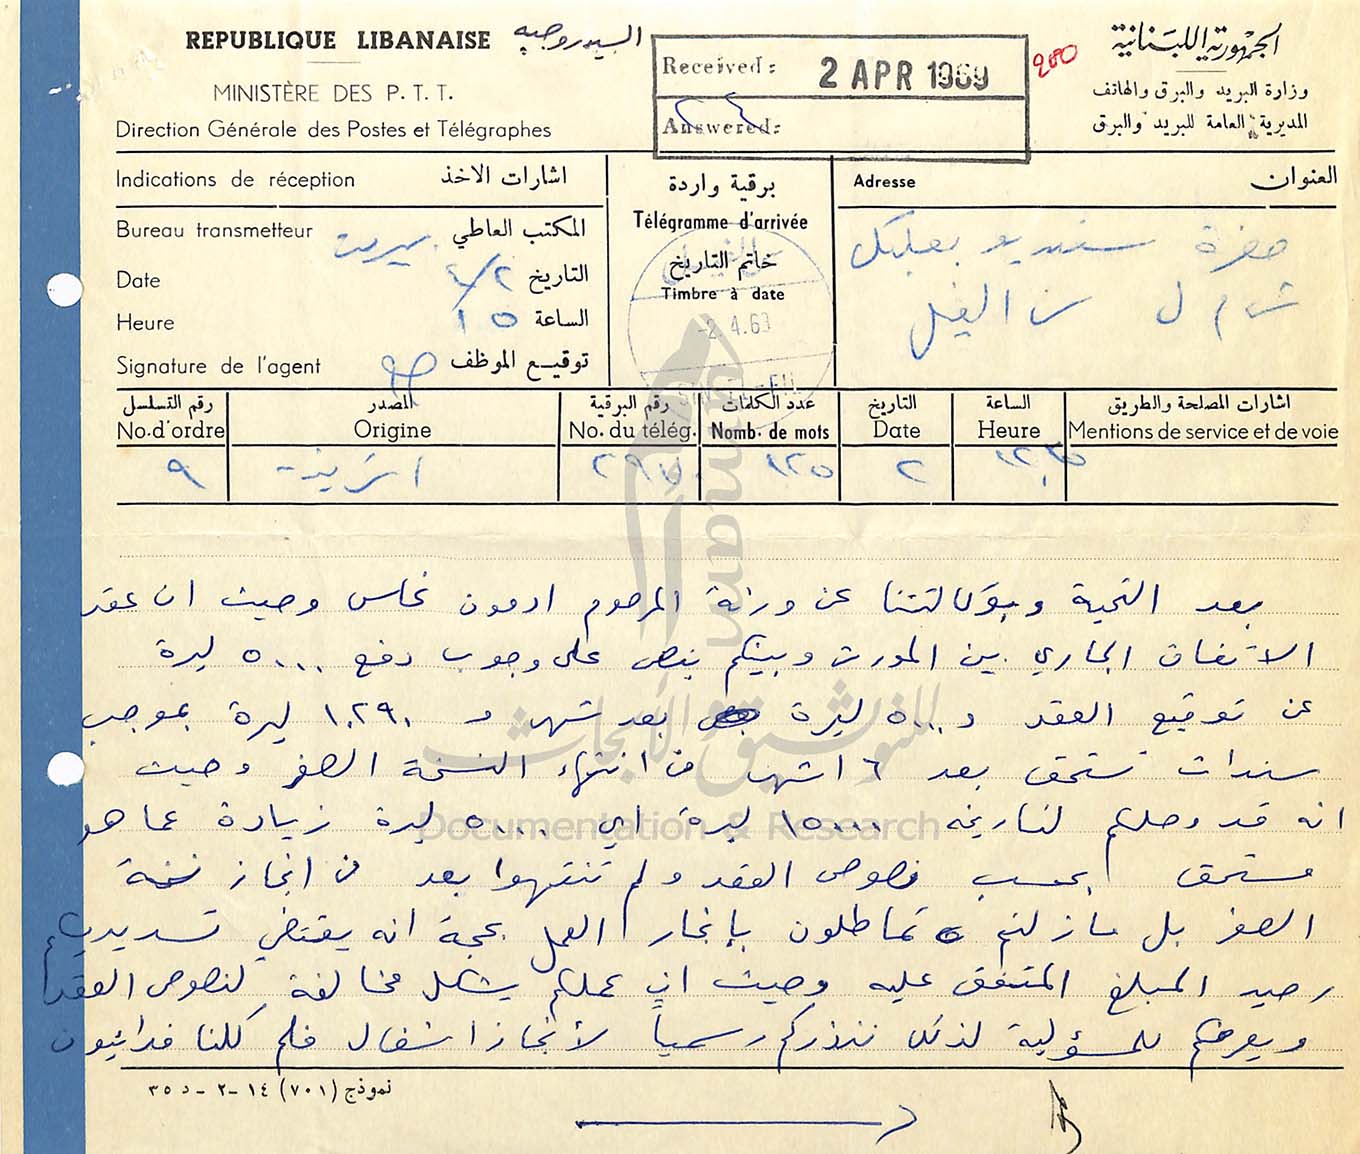 REPUBLIQUE LIBANAISE
السيد روجيه
الجمهورية اللبنانية
MINISTÈRE DES P. T. T.
وزارة البريد والبرق والهاتف
Direction Générale des Postes et Télégraphes
المديرية العامة للبريد والبرق
Received: 2 APR 1969
Answered:
200
Indications de réception اشارات الاخذ
Bureau transmetteur المكتب العاطي بيروت
Date التاريخ ٤/٢
Heure الساعة ١٥
Signature de l'agent توقيع الموظف
برقية واردة
Télégramme d'arrivée
خاتم التاريخ
Timbre à date
-2.4.69
Adresse العنوان
حضرة ستديو بعلبك
ش م ل سن الفيل
رقم التسلسل المصدر رقم البرقية عدد الكلمات التاريخ الساعة اشارات المصلحة والطريق
No.d'ordre Origine No. du télég. Nomb. de mots Date Heure Mentions de service et de voie
٩ ١٢٥ ٢
بعد التحية وبوكالتنا عن ورثة المرحوم ادمون نحاس وحيث ان عقد
الاتفاق الجاري بين المورث وبينكم ينص على وجوب دفع ٥٠٠٠ ليرة
عن توقيع العقد و ٥٠٠٠ ليرة بعد شهر و ١٠٢٩٠ ليرة بموجب
سندات تستحق بعد ٦ اشهر من انتهاء النسخة الصفر وحيث
انه قد وصلكم لتاريخه ١٥٠٠٠ ليرة اي ٥٠٠٠ ليرة زيادة عما هو
مستحق بحسب نصوص العقد ولم تنتهوا بعد من انجاز نسخة
الصفر بل ما زلتم تماطلون بإنجاز العمل بحجة انه يقتضي تسديد
رصيد المبلغ المتفق عليه وحيث ان عملكم يشكل مخالفة لنصوص العقد
ويعرضكم للمسؤولية لذلك ننذركم رسمياً لأنجاز اشغال فلم كلنا فدائيون
نموذج (٧٠١) ١٤-٢-د ٣٥
umam
للتوثيق والأبحاث
Documentation & Research